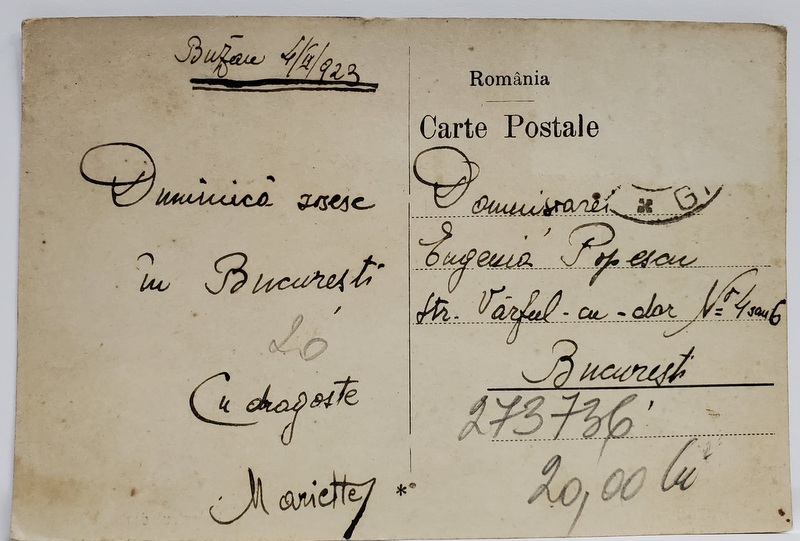 Buzău 4/II/923
Duminică sosesc
în București
20
Cu dragoste
Mariette
România
Carte Postale
Domnișoarei
G.
Eugenia Popescu
str. Vârful-cu-dor Nº 4 sau 6
București
273736
20,00 lei